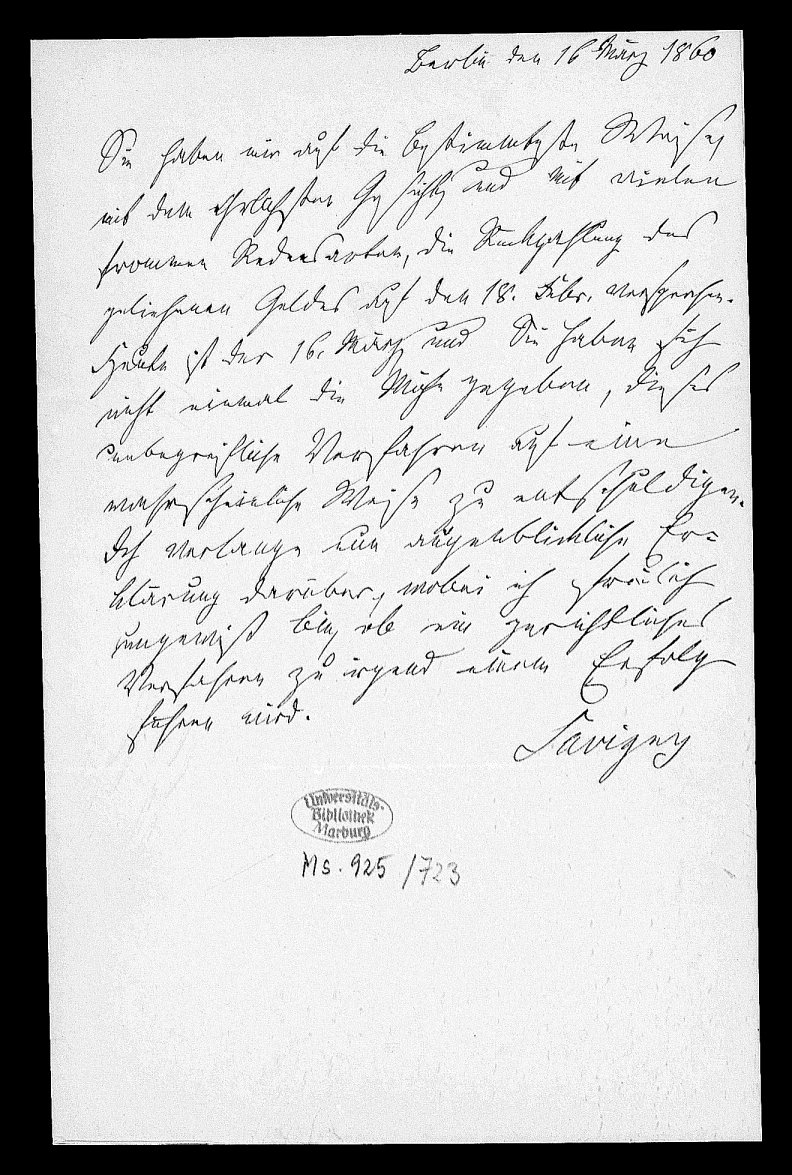 Berlin den 16 März 1860
Sie haben mir auf die bestimmteste Weise,
mit dem ehrlichsten Gesicht, und mit vielen
frommen Redensarten, die Rückzahlung des
geliehenen Geldes auf den 18. Febr. versprochen.
Heute ist der 16. März und Sie haben sich
nicht einmal die Mühe gegeben, dieses
unbegreifliche Verfahren auf eine
wahrscheinliche Weise zu entschuldigen.
Ich verlange nun augenblickliche Er=
klärung darüber, wobei ich freilich
ungewiß bin, ob ein gerichtliches
Verfahren zu irgend einem Erfolg
führen wird.
Savigny
Universitäts-
Bibliothek
Marburg
Ms. 925 /723